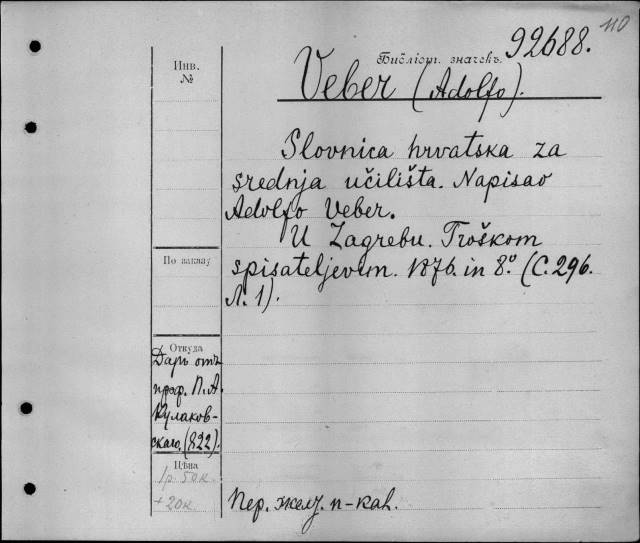 110
92688.
Инв.
№
Библіот. значекъ.
Veber (Adolfo).
Slovnica hrvatska za
srednja učilišta. Napisao
Adolfo Veber.
U Zagrebu. Troškom
По заказу
spisateljevim. 1876. in 8º (С. 296.
Л. 1).
Откуда
Даръ отъ
проф. П. А.
Кулаков-
скаго. (822).
Цѣна
1 р. 50 к.
+ 20 к.
Пер. жел. п-кал.